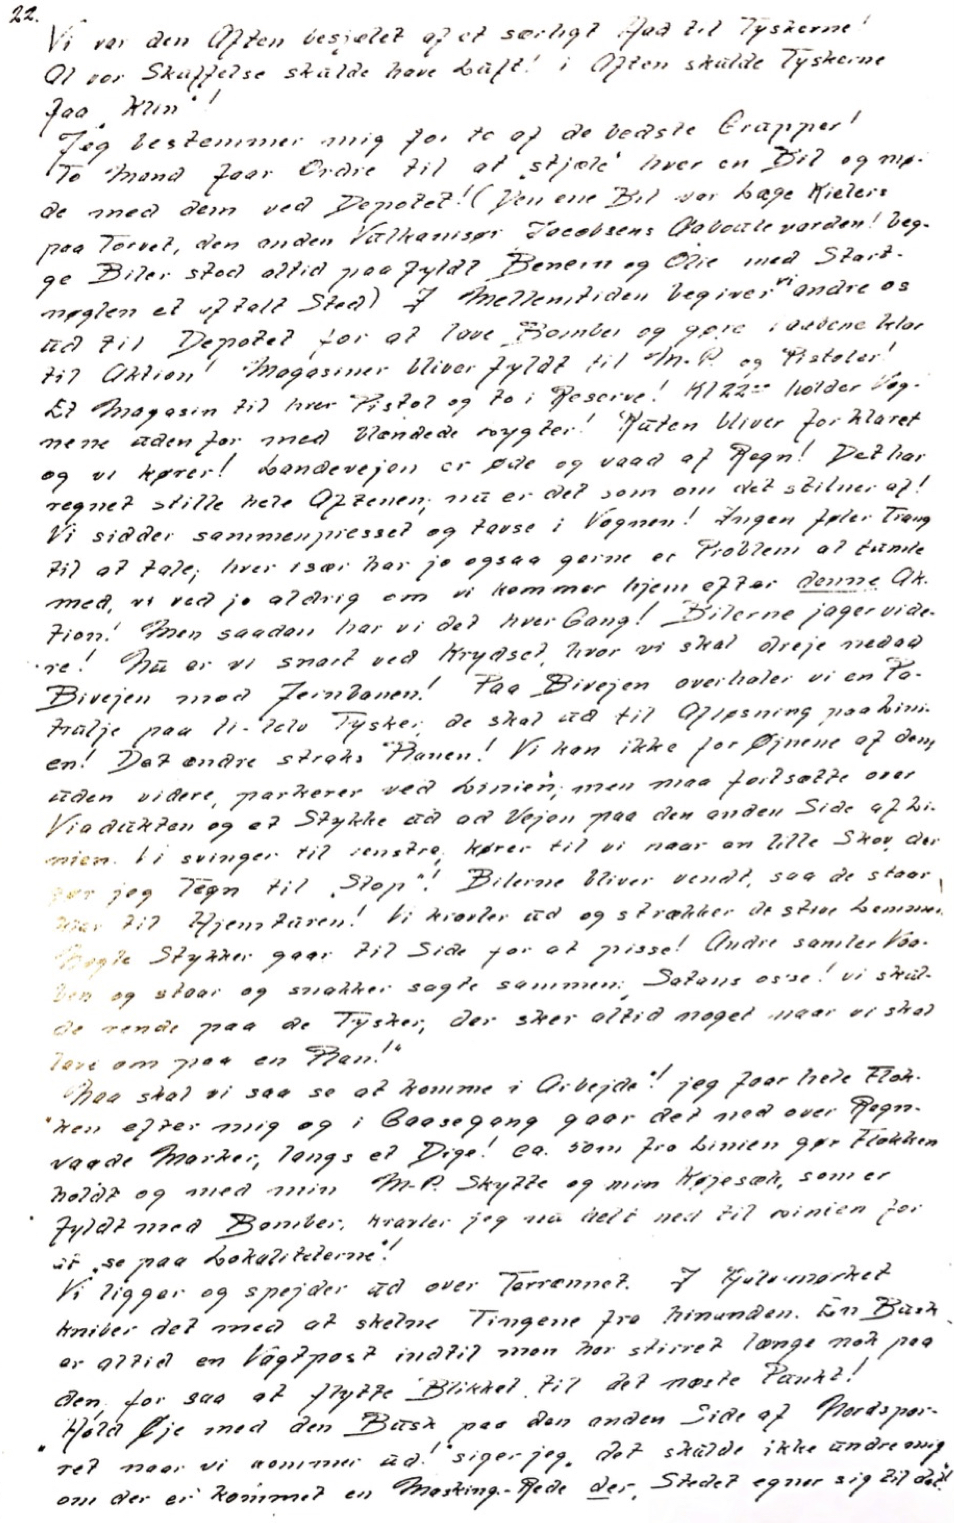 22.
Vi var den Aften besjælet af et særligt Had til Tyskerne!
Al vor Skuffelse skulde have Luft! i Aften skulde Tyskerne
faa "Klin"!
Jeg bestemmer mig for to af de bedste Grupper!
To Mand faar Ordre til at "stjæle" hver en Bil og mø-
de med dem ved Depotet! (Den ene Bil var Læge Kielers
paa Torvet, den anden Vulkanisør Jacobsens Aaboulevarden! beg-
ge Biler stod altid paa fyldt Benein og Olie med Start-
nøglen et aftalt Sted) I Mellemtiden begiver vi andre os
ud til Depotet for at lave Bomber og gøre Vaabene klar
til Aktion! Magasiner bliver fyldt til M.P. og Pistoler!
Et Magasin til hver Pistol og to i Reserve! Kl 22 holder Vog-
nene udenfor med blændede Lygter! Ruten bliver forklaret
og vi kører! Landevejen er øde og vaad af Regn! Det har
regnet stille hele Aftenen, nu er det som om det stilner af!
Vi sidder sammenpresset og tavse i Vognen! Ingen føler Trang
til at tale, hver især har jo ogsaa gerne et Problem at tumle
med, vi ved jo aldrig om vi kommer hjem efter denne Ak-
tion! Men saadan har vi det hver Gang! Bilerne jager vide-
re! Nu er vi snart ved Krydset, hvor vi skal dreje nedad
Bivejen mod Jernbanen! Paa Bivejen overhaler vi en Pa-
trulje paa ti-tolv Tysker, de skal ud til Afløsning paa Lini-
en! Det ændre straks Planen! Vi kan ikke for Øjnene af dem,
uden videre, parkerer ved Linien, men maa fortsætte over
Viadukten og et Stykke ud ad Vejen paa den anden Side af Li-
nien. Vi svinger til venstre, kører til vi naar en lille Skov, der
gør jeg Tegn til "Stop"! Bilerne bliver vendt, saa de staar
klar til Hjemturen! Vi kravler ud og strækker de stive Lemmer.
Nogle Stykker gaar til Side for at pisse! Andre samler Vaa-
ben og staar og snakker sagte sammen, Satans os'se! vi skul-
de rende paa de Tysker, der sker altid noget naar vi skal
lave om paa en Plan!"
"Naa skal vi saa se at komme i Arbejde"! jeg faar hele Flok-
ken efter mig og i Gaasegang gaar det ned over Regn-
vaade Marker, langs et Dige! ca. 50m fra Linien gør Flokken
holdt og med min M.P. Skytte og min Køjesæk, som er
fyldt med Bomber, kravler jeg nu helt ned til Linien for
at "se paa Lokaliteterne"!
Vi ligger og spejder ud over Terrænnet. I Halvmørket
kniber det med at skelne Tingene fra hinanden. En Busk
er altid en Vagtpost indtil man har stirret længe nok paa
den, for saa at flytte Blikket til det næste Punkt!
"Hold Øje med den Busk paa den anden Side af Nordspor-
ret naar vi kommer ud!" siger jeg, det skulde ikke undre mig
om der er kommet en Masking.-Rede der, Stedet egner sig til det"!